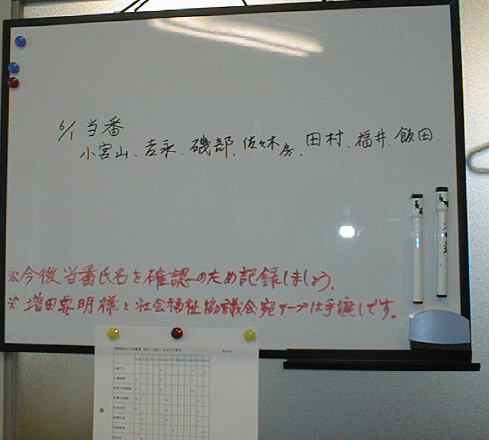 6/1 当番
小宮山、吉永、磯部、佐々木房、田村、福井、飯田
※今後当番氏名を確認のため記録しましょう。
※増田要明様と社会福祉協議会宛テープは手渡しです。